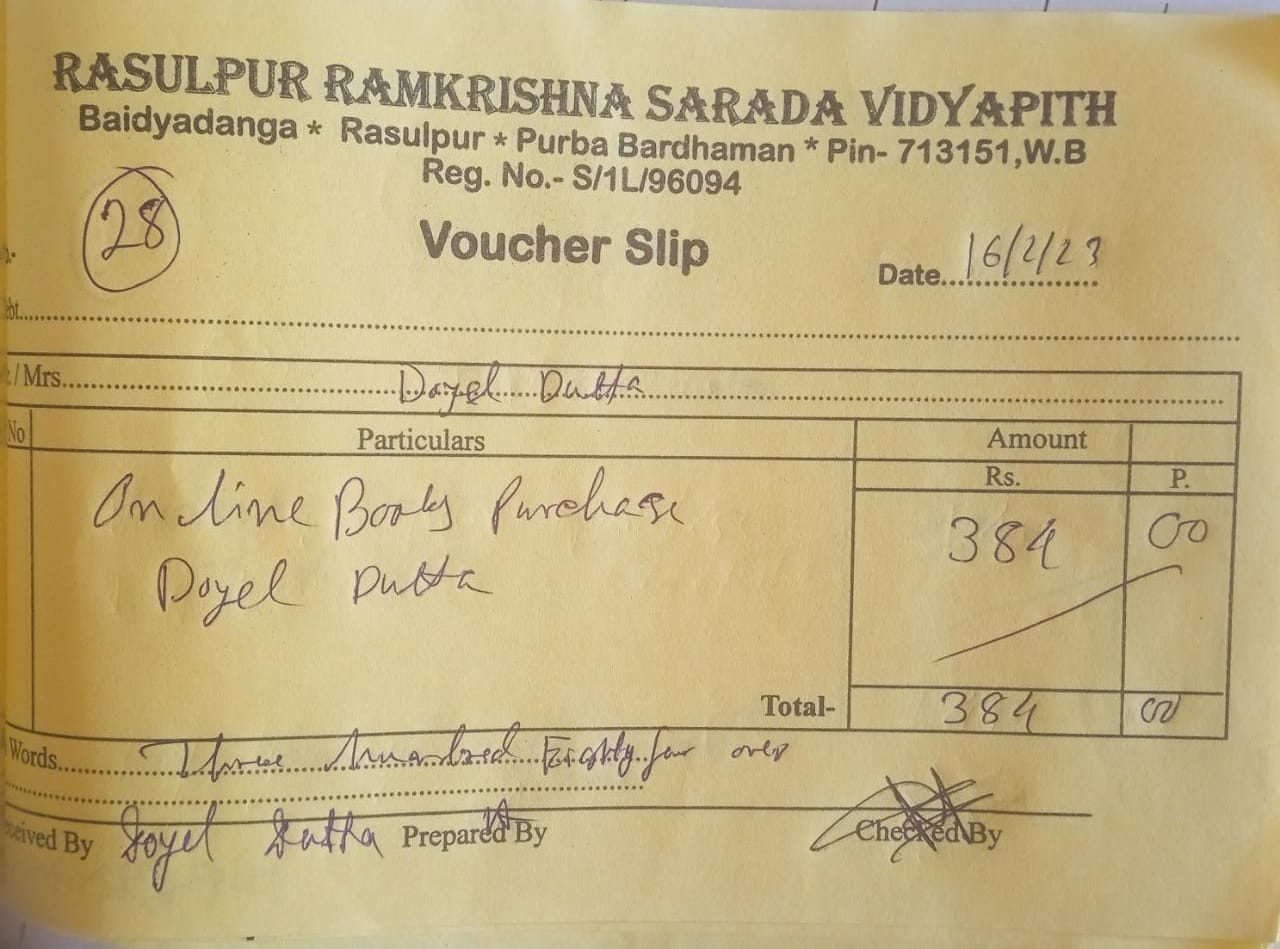 RASULPUR RAMKRISHNA SARADA VIDYAPITH
Baidyadanga * Rasulpur * Purba Bardhaman * Pin- 713151,W.B
Reg. No.- S/1L/96094
28
Voucher Slip
Date 16/2/23
/ Mrs. Doyel Dutta
No Particulars Amount
Rs. P.
On line Books Purchase 384 00
Doyel Dutta
Total- 384 00
Words Three hundred Eighty four over
eived By Doyel Dutta Prepared By Checked By